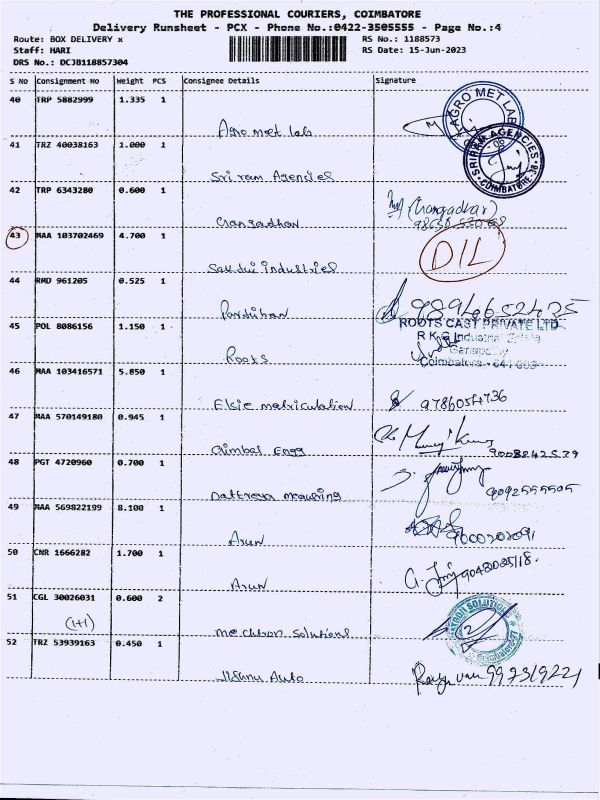 THE PROFESSIONAL COURIERS, COIMBATORE
Delivery Runsheet - PCX - Phone No.:0422-3505555 - Page No.:4
Route: BOX DELIVERY x RS No.: 1188573
Staff: HARI RS Date: 15-Jun-2023
DRS No.: DCJB118857304
S No Consignment No Weight PCS Consignee Details Signature
40 TRP 5882999 1.335 1
Agro meet lab AGRO MET LAB
41 TRZ 40038163 1.000 1
Sri ram Agencies SRIRAM AGENCIES COIMBATORE-38
42 TRP 6343280 0.600 1
Gangadhar (Gangadhar)
43 MAA 103702469 4.700 1
Sakthi industries DIL
44 RMD 961205 0.525 1
Parthiban 9894652435
45 POL 8086156 1.150 1 ROOTS CAST PRIVATE LTD
R K G Industrial Estate
Ganapathy
Roots Coimbatore - 641 006
46 MAA 103416571 5.850 1
Elsie matriculation 9786054736
47 MAA 570149180 0.945 1
Engg 9008842529
48 PGT 4720960 0.700 1
9092555505
49 MAA 569822199 8.100 1
Arun
50 CNR 1666282 1.700 1
Arun
51 CGL 30026031 0.600 2
(1+1)
mechtron Solutions SOLUTIONS
52 TRZ 53939163 0.450 1
Jishnu Auto